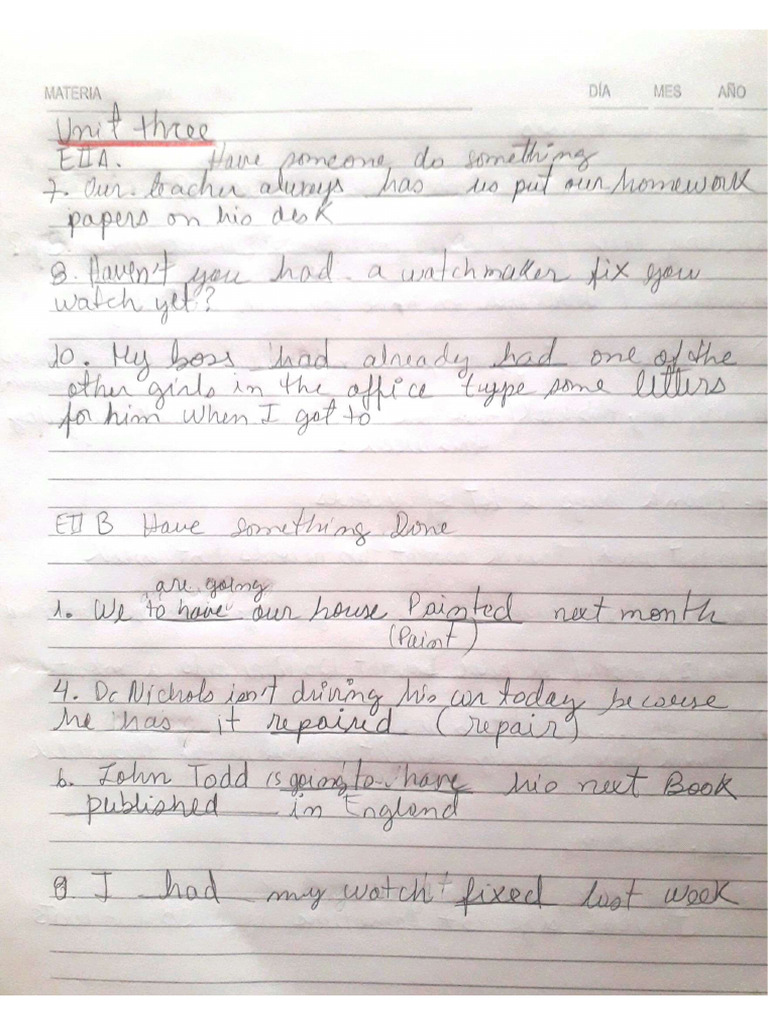 MATERIA DÍA MES AÑO
Unit three
EIIA. Have someone do something
7. Our teacher always has us put our homework
papers on his desk
8. Haven't you had a watchmaker fix you
watch yet?
10. My boss had already had one of the
other girls in the office type some letters
for him when I got to
EII B Have something Done
are going
1. We to have our house Painted next month
(Paint)
4. Dr Nichols isn't driving his car today because
he has it repaired (repair)
6. John Todd is going to have his next Book
published in England
8 I had my watch fixed last week